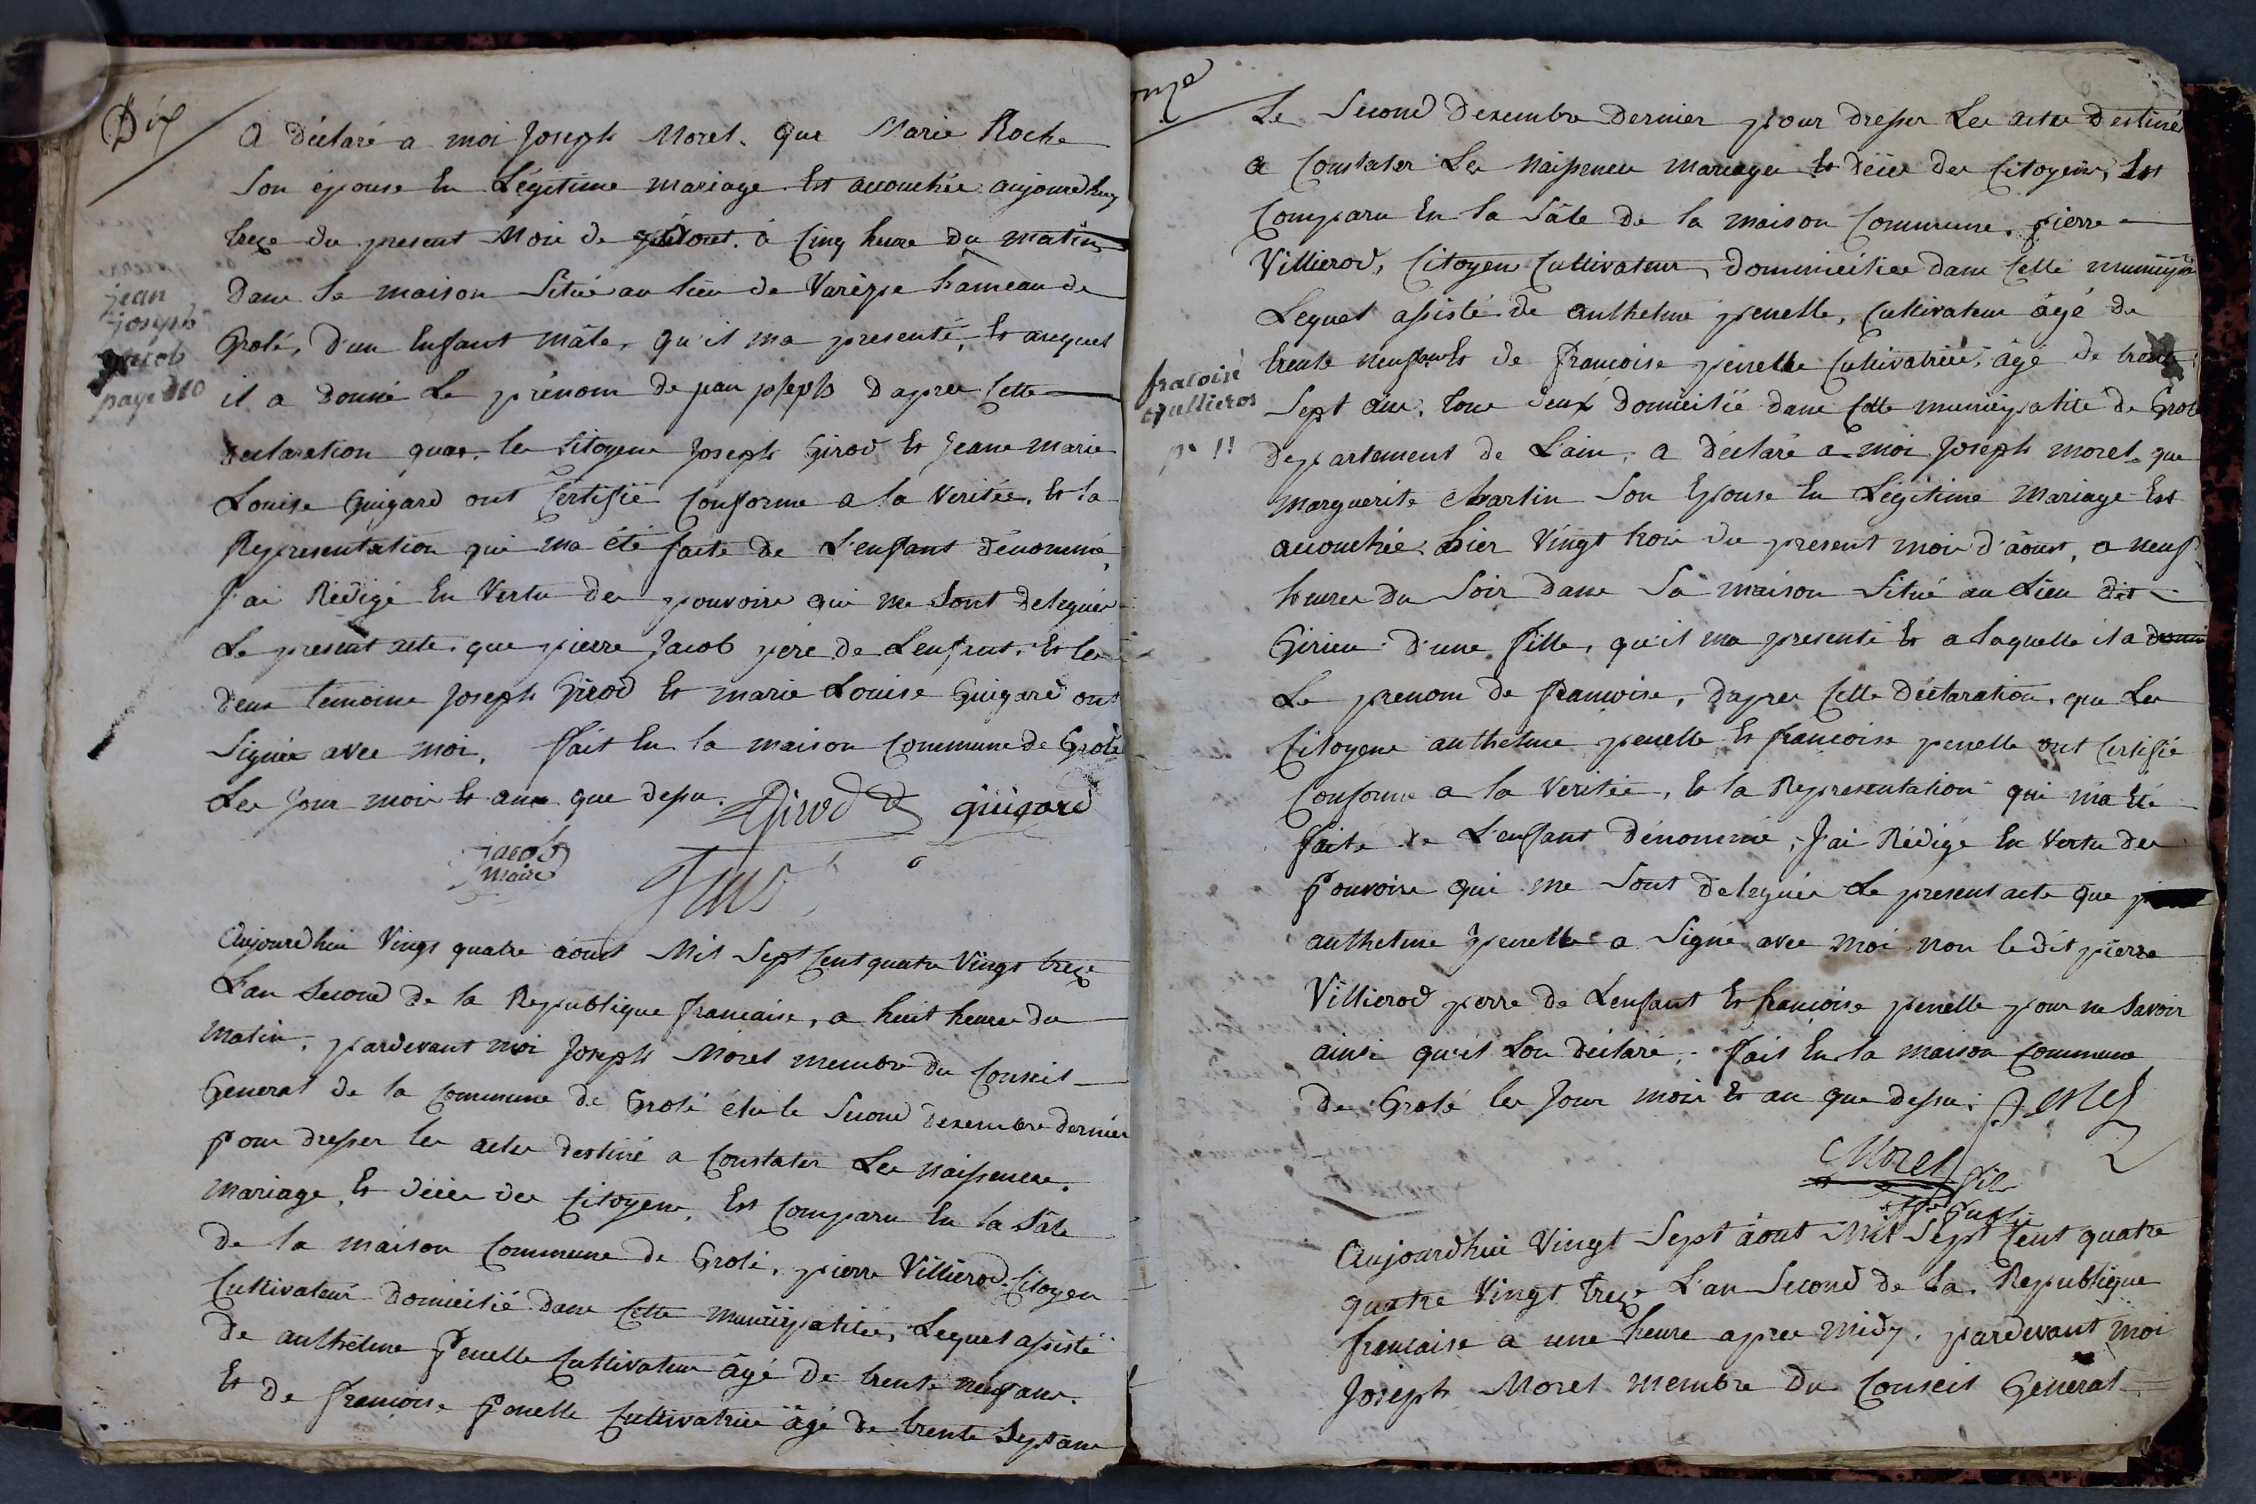 Dix
A déclaré a moi Joseph Morel. que Marie Roche
Son épouse En Légitime mariage Est accouchée aujourdhuy
treze du present Mois de à Cinq heure du matin
dans Sa maison Située au lieu de Varèpe hameau de
Grolé, d'un Enfant mâle, qu'il ma presenté, Et auquel
il a donné Le prénom de jean joseph dapres Cette
declaration que les Citoyens Joseph Girod Et Jeane Marie
Louise Guigard ont Certifié Conforme a la Verités, Et la
Representation qui ma été faite de L'enfant dénommé,
J'ai Rédigé En Vertu des pouvoirs qui me Sont delegués
Le present acte, que pierre Jacob père de L'enfant, Et les
deux temoins Joseph Girod Et marie Louise Guigard ont
Signés avec moi. fait En la maison Commune de Grolé
Les Jour mois Et ans que dessu. Girod guigard
jacob
maire
jean
joseph
jacob
page 10
Aujourdhui Vingt quatre aoust Mil Sept Cent quatre Vingt treze
L'an Second de la Republique francaise, a huit heures du
matin, pardevant moi Joseph Morel membre du Conseil
General de la Commune de Grolé élu le Second dexembre dernier
pour dresser les actes destiné a Constater Les naissences,
mariage, Et décès des Citoyens, Est Comparu En la Sâle
de la maison Commune de Grolé, pierre Villierod Citoyen
Cultivateur domicilié dans Cette municipalitée, Lequel assisté
de anthelme penelle Cultivateur âgé de trente neuf ans.
Et de francoise penelle Cultivatrice âgé de trente Sept ans
onze
Le Second dexembre dernier pour dresser Les actes destinés
a Constater Les naissences mariages Et décès des Citoyens, Est
Comparu En la Sâle de la maison Commune, pierre
Villierod, Citoyen Cultivateur domiciliée dans Cette
Lequel assisté de anthelme penelle, Cultivateur âgé de
trente neuf ans Et de francoise penelle Cultivatrice, âgé de trente
Sept ans, tous deux domicilié dans Cette municipalité de Grolé
departement de L'ain, a déclaré a moi Joseph morel que
marguerite Martin Son Epouse En Légitime Mariage Est
accouchée hier Vingt trois du present mois d'aoust, a neuf
heures du Soir dans Sa maison Situé au Lieu dit
Girieu d'une fille, qu'il ma presenté Et a laquelle il a donné
Le prenom de francoise, dapres Cette déclaration, que Les
Citoyens anthelme penelle Et francoise penelle ont Certifié
Conforme a la Veritée, Et la Representation qui ma été
faite de L'enfant dénommé, J'ai Rédigé En Vertu des
pouvoirs qui me Sont delegués Le present acte que
anthelme penelle a Signé avec moi non ledit pierre
Villierod perre de L'enfant Et francoise penelle pour ne Savoir
ainsi qu'il Lon déclaré. fait En la maison Commune
de Grolé les Jour mois Et an que dessu.
Morel fils
fracoise
p. 11
Aujourdhui Vingt Sept aout Mil Sept Cent quatre
quatre Vingt treze L'an Second de la Republique
francaise a une heure apres midy, pardevant moi
Joseph Morel membre du Conseil General